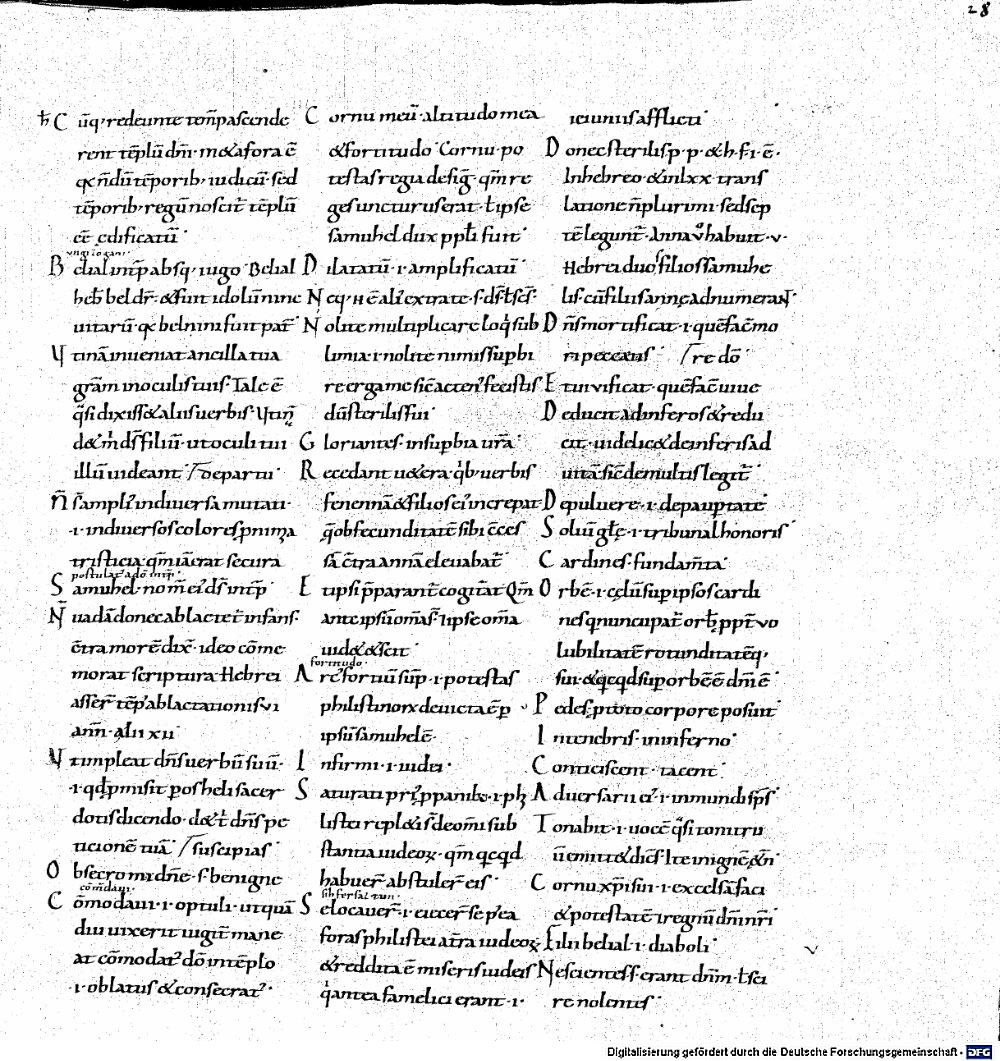 28
ħ C ūq; redeunte tom̄pascende
rent tēplū dn̄i · m&afora ē
qc n̄dū tēporib; iudicū · sed
tēporib; regū noscit̄ tēplū
eē edificatū ·
B elial int̄p absq; iugo · Belial
heb̄ bel dr̄ · & sunt idolū nine
uitarū · qc bel nini fuit pat̄
V tinā inueniat ancilla tua
gr̄am in oculis tuis · Tale ē
q̄si dixiss& aliis uerbis · Vtin̄
d& m̄ ds̄ filiū · ut oculi tui
illū uideant · depar tu ·
N̄ s̄ ampl' in diuersa mutati ·
· i · in diuersos colores p nimia
tristicia · qm̄ iā erat secura
postulat' a dō int̄p ·
S amuhel · nom̄ ei' ds̄ int̄p
N̄ uadā donec ablactet̄ infans ·
c̄tra morē dix̄ · ideo cōme
morat scriptura · Hebrei
asser̄ tēp' ablactationis vi
ann̄ · alii xii ·
V t impleat dn̄s uerbū suū ·
· i · qd p̄misit p os heli sacer
dotis dicendo · d&̄ t̄ dn̄s pe
ticionē tuā · suscipias ·
O bsecro mi dn̄e · s · benigne
cōmdaui ·
C ōmodaui · i · optuli · ut quā
diu uixerit uigit̄ mane
at cōmodat' dō in tēplo
· i · oblatus & consecrat' ·
C ornu meū · altitudo mea
& fortitudo · Cornu · po
testas regia desig̃ · qm̄ re
ges uncturus erat · t̄ ipse
samuhel dux ppl̄i fuit ·
D ilatatū · i · amplificatū ·
N eq; · H ē ali' extra te · s · ds̄ t̄ scs̄ ·
N olite multiplicare loq̇ sub
limia · i · nolite nimis supbi
re erga me sic̄ acten' fecistis
dū sterilis fui ·
G loriantes · in supbia ur̄a ·
R ecedant u&era · q̇b; uerbis
fenennā & filios ei' increpat
q̄ ob fecunditatē sibi cc̄es
sā c̄tra annā eleuabat̄ ·
E t ipsi p̄parant̄ cogitat̄ Qm̄
ante ipsū om̄s · s · ipse om̄a
uid& & scit ·
fortitudo ·
A rc' fortiū sup̄ · i · potestas
philistinorx deuicta ē p
ipsū samuhelē ·
I nfirmi · i · iudei ·
S aturati pri' p panib; · i · ph
listei repl&i s̄ de om̄i sub
stantia iudeoꝝ · qm̄ qcqd
habuer̄ abstuler̄ eis ·
S e locauer̄ · i · eiecer̄ se p ea
foras philistei a t̄ra iudeoꝝ
& reddita ē miseris iudeis
q̇ antea famelici erant · i ·
ieiuniis afflicti ·
D onec sterilis p · p · & h · f · i · ē ·
In hebreo & in lxx trans
latione n̄ plurimi · sed sep
tē legunt̄ · Anna v̊ habuit · v ·
Hebrei duos filios samuhe
lis · cū filiis annę adnumerant ·
D n̄s mortificat · i · quē fac̄ mo
ri peccatis · re dō ·
E t uiuificat · quē fac̄ uiue
D educit ad inferos & redu
cit · uidelic& de inferis ad
uitā · sic̄ de multis legit̄ ·
D e puluere · i · de paup̄tate
S oliū gl̄ę · i · tribunal honoris ·
C ardines · fundam̄ta ·
O rbē · i · cęlū sup ipsos cardi
nes q nuncupat̄ orb; ppt̄ vo
lubilitatē rotunditatēq;
sui · & qcqd sup orbē ē dm̄ ē ·
P edes · p toto corpore posuit ·
I n tenebris · in inferno ·
C onticiscent · tacent ·
A duersarii ei' · i · inmundi sp̄s ·
T onabit · i · uocē q̄si tonitru
ū emitt& dic̄s · Ite in ignē &n̄
C ornu xp̄i sui · i · excelsā faci
& potestatē i regnū dn̄i nr̄i
F ilii belial · i · diaboli ·
N escientes · s · erant dn̄m · t̄ sci
re nolentes ·
Digitalisierung gefördert durch die Deutsche Forschungsgemeinschaft - DFG